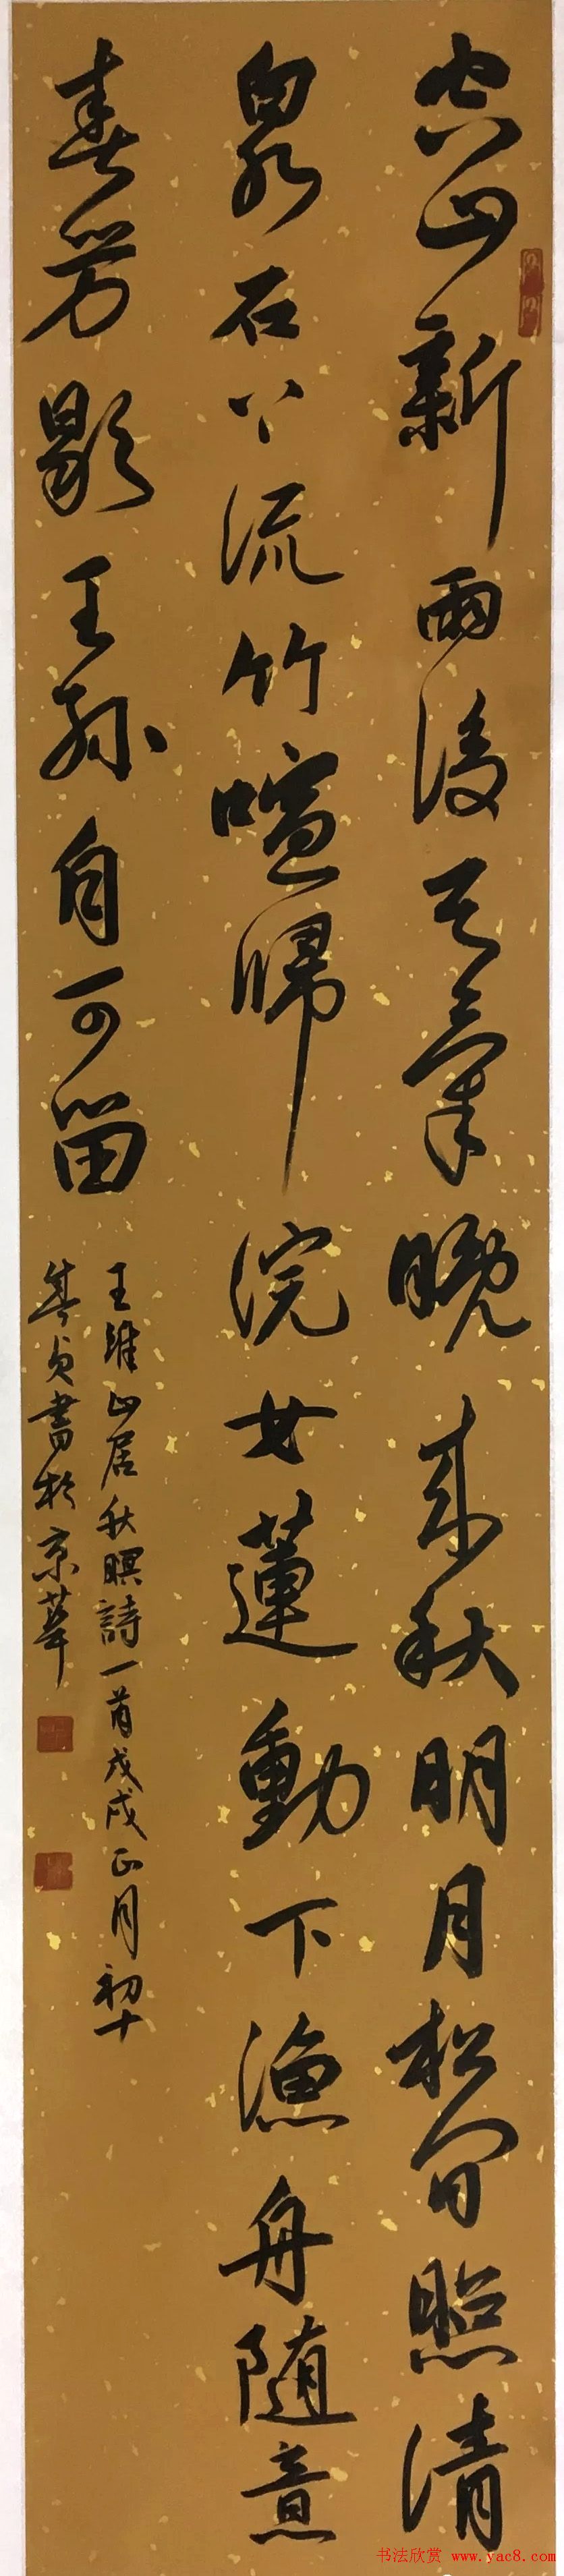 空山新雨後天氣晚來秋明月松間照清
泉石上流竹喧歸浣女蓮動下漁舟随意
春芳歇王孫自可留
王維山居秋暝詩一首戊戌正月初十
書於京華
书法欣赏 www.yac8.com